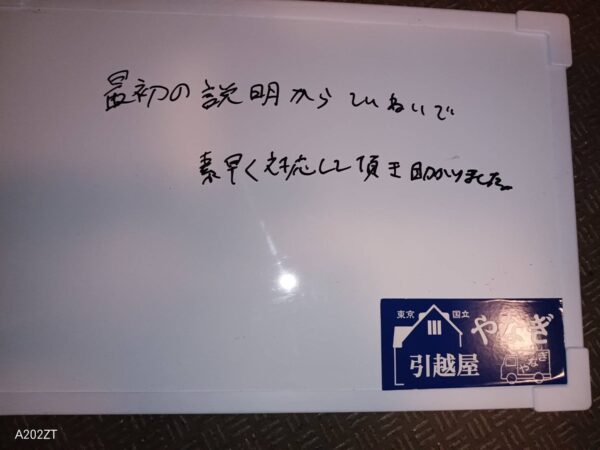 最初の説明からていねいで
素早く対応して頂き助かりました。
東京 国立 やなぎ
引越屋 やなぎ
A202ZT